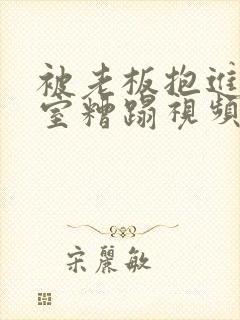 被老板抱進
室糟蹋視頻
宋麗敏